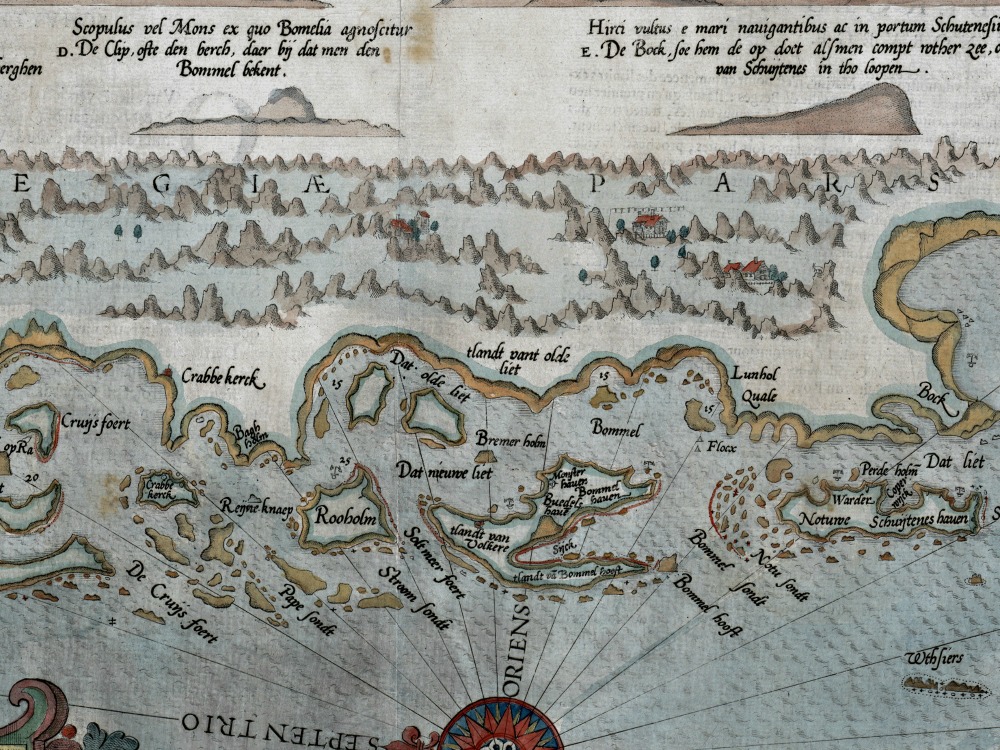 Scopulus vel Mons ex quo Bomelia agnoscitur
D. De Clip, ofte den berch, daer bij dat men den
Bommel bekent.
erghen
Hirci vultus e mari nauigantibus ac in portum Schutensi
E. De Bock, soe hem de op doet alsmen compt wther zee,
van Schuijtenes in tho loopen.
E G I Æ P A R S
Crabbe kerck
Dat olde liet
tlandt vant olde
liet
Lunhol
Quale
Bock
15
15
15
Cruijs foert
op Ra
Bagh
holm
Bremer holm
Bommel
Flocx
20
25
Crabbe
kerck
Reijne knaep
Rooholm
Dat nieuwe liet
Monster
hauen
Bommel
hauen
Buedels
haue
Perde holm
Dat liet
Warder
Notuwe
Schuijtenes hauen
tlandt van
Volkere
tlandt vā Bommel hooft
Selmer foert
Stroom sondt
Pape sondt
De Cruijs foert
Bommel sondt
Notu sondt
Bommel hooft
Wthsiers
ORIENS
SEPTENTRIO